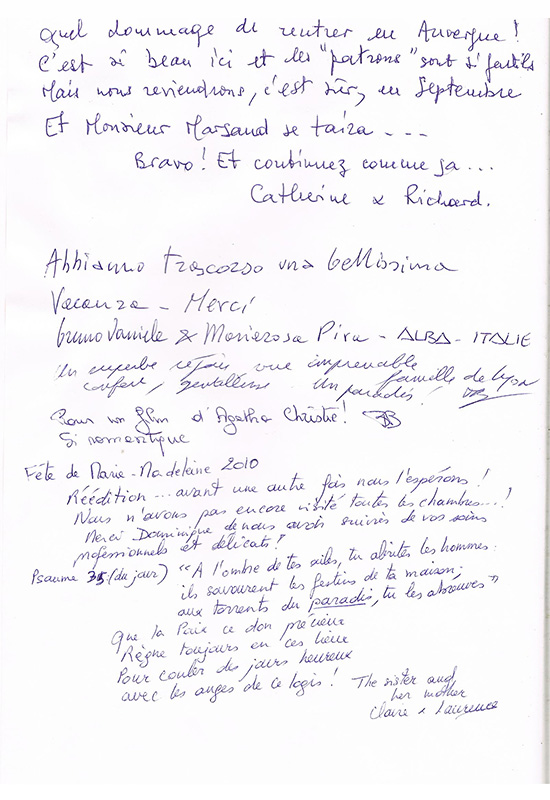 Quel dommage de rentrer en Auvergne !
C'est si beau ici et les "patrons" sont si gentils
Mais nous reviendrons, c'est sûr, en Septembre
Et Monsieur Marsaud se taira ---
Bravo ! Et continuez comme ça ...
Catherine & Richard.
Abbiamo trascorso una bellissima
Vacanza - Merci
bruno Daniele & Marierosa Pira - ALBA - ITALIE
Un superbe séjour, vue imprenable
confort, gentillesse Un paradis ! famille de Lyon
Pour un film d'Agatha Christie !
Si romantique
Fête de Marie-Madeleine 2010
Réédition ... avant une autre fois nous l'espérons !
Nous n'avons pas encore visité toutes les chambres ... !
Merci Dominique de nous avoir suivies de vos soins
professionnels et délicats !
Psaume 35 (du jour) "A l'ombre de tes ailes, tu abrites les hommes :
ils savourent les festins de ta maison ;
aux torrents du paradis, tu les abreuves"
Que la Paix ce don précieux
Règne toujours en ces lieux
Pour couler des jours heureux
avec les anges de ce logis !
The sister and
her mother
Claire & Laurence